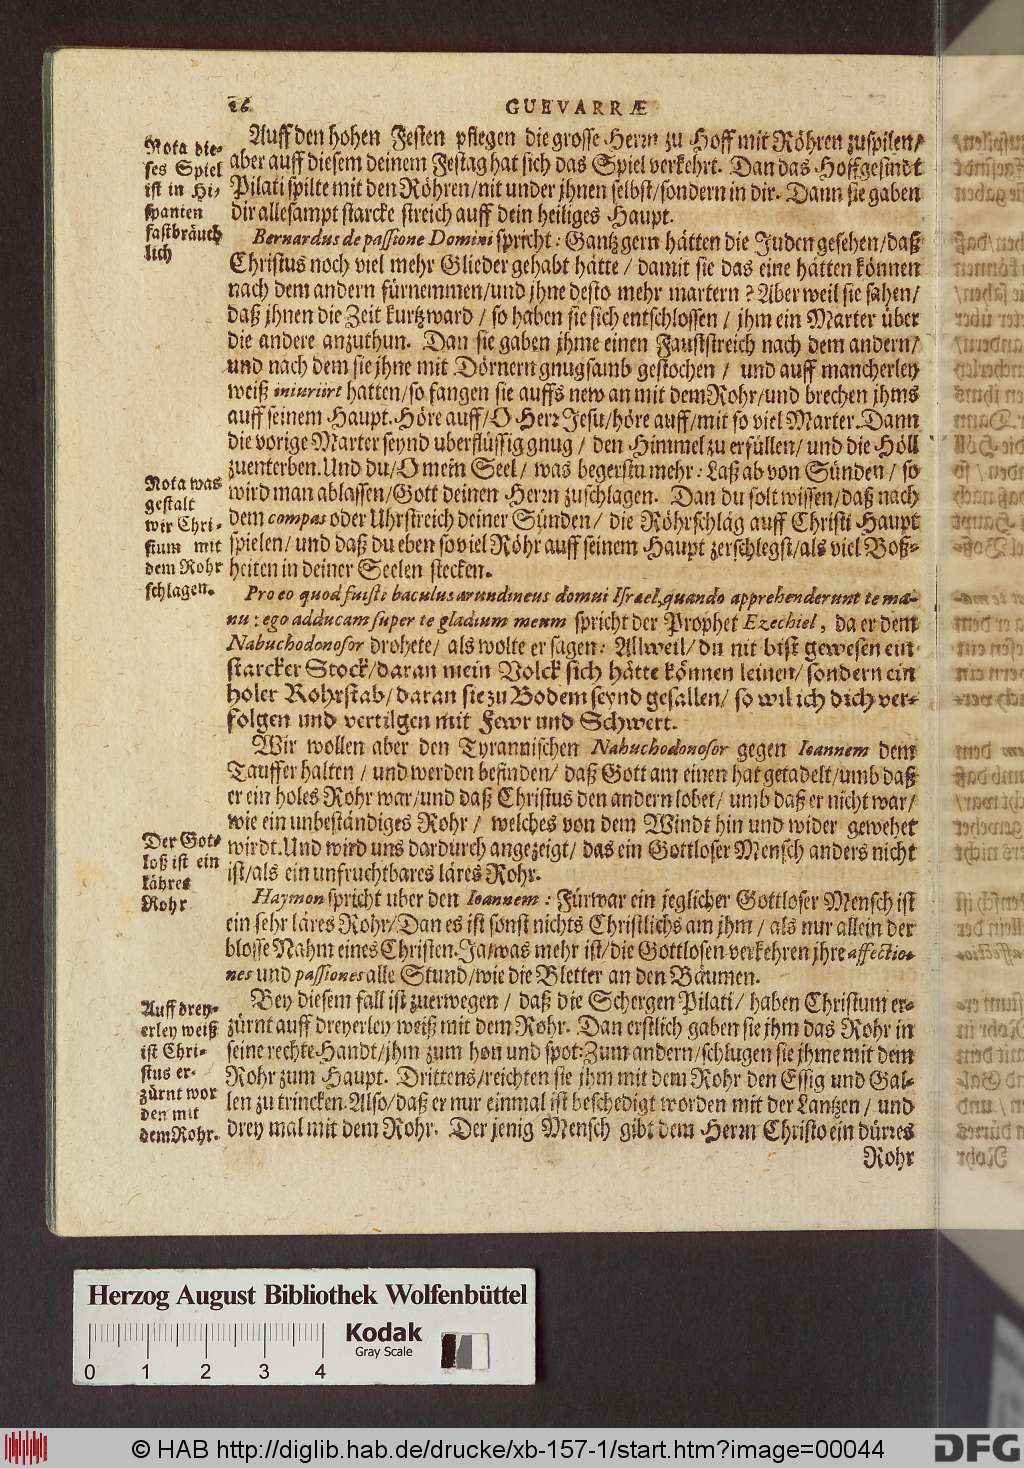 26
GUEVARRÆ
Auff den hohen Festen pflegen die grosse Herrn zu Hoff mit Röhren zuspilen/
aber auff diesem deinem Festag hat sich das Spiel verkehrt. Dan das Hoffgesindt
Pilati spilte mit den Röhren/nit under jhnen selbst/sondern in dir. Dann sie gaben
dir allesampt starcke streich auff dein heiliges Haupt.
Nota die-
ses Spiel
ist in Hi-
spanien
fast bräuch
lich
Bernardus de passione Domini spricht: Gantz gern hätten die Juden gesehen/daß
Christus noch viel mehr Glieder gehabt hätte / damit sie das eine hätten können
nach dem andern fürnemmen/und jhne desto mehr martern? Aber weil sie sahen/
daß jhnen die Zeit kurtz ward / so haben sie sich entschlossen / jhm ein Marter über
die andere anzuthun. Dan sie gaben jhme einen Fauststreich nach dem andern/
und nach dem sie jhne mit Dörnern gnugsamb gestochen / und auff mancherley
weiß iniuriirt hatten/so fangen sie auffs new an mit dem Rohr/und brechen jhms
auff seinem Haupt. Höre auff/O Herr Jesu/höre auff/mit so viel Marter. Dann
die vorige Marter seynd uberflüssig gnug / den Himmel zu erfüllen/ und die Höll
zuenterben. Und du/O mein Seel / was begerstu mehr: Laß ab von Sünden / so
wird man ablassen/Gott deinen Herrn zuschlagen. Dan du solt wissen/daß nach
dem compas oder Uhrstreich deiner Sünden/ die Röhrschläg auff Christi Haupt
spielen/ und daß du eben so viel Röhr auff seinem Haupt zerschlegst/als viel Boß-
heiten in deiner Seelen stecken.
Nota was
gestalt
wir Chri-
stum mit
dem Rohr
schlagen.
Pro eo quod fuisti baculus arundineus domui Israel, quando apprehenderunt te ma-
nu: ego adducam super te gladium meum spricht der Prophet Ezechiel, da er dem
Nabuchodonosor drohete/ als wolte er sagen: Allweil/ du nit bist gewesen ein
starcker Stock/daran mein Volck sich hätte können leinen/ sondern ein
holer Rohrstab/daran sie zu Bodem seynd gefallen/ so wil ich dich ver-
folgen und vertilgen mit Fewr und Schwert.
Wir wollen aber den Tyrannischen Nabuchodonosor gegen Ioannem dem
Tauffer halten / und werden befinden/ daß Gott am einen hat getadelt/umb daß
er ein holes Rohr war/und daß Christus den andern lobet/ umb daß er nicht war/
wie ein unbeständiges Rohr / welches von dem Windt hin und wider gewehet
wirdt. Und wird uns dardurch angezeigt/ das ein Gottloser Mensch anders nicht
ist/als ein unfruchtbares läres Rohr.
Der Gott-
loß ist ein
lähres
Rohr
Haymon spricht uber den Ioannem: Fürwar ein jeglicher Gottloser Mensch ist
ein sehr läres Rohr/Dan es ist sonst nichts Christlichs am jhm / als nur allein der
blosse Nahm eines Christen. Ja/was mehr ist/die Gottlosen verkehren jhre affectio-
nes und passiones alle Stund/wie die Bletter an den Bäumen.
Bey diesem fall ist zuerwegen / daß die Schergen Pilati/ haben Christum er-
zürnt auff dreyerley weiß mit dem Rohr. Dan erstlich gaben sie jhm das Rohr in
seine rechte Handt/jhm zum hon und spot: Zum andern/schlugen sie jhme mit dem
Rohr zum Haupt. Drittens/reichten sie jhm mit dem Rohr den Essig und Gal-
len zu trincken. Also/daß er nur einmal ist beschedigt worden mit der Lantzen / und
drey mal mit dem Rohr. Der jenig Mensch gibt dem Herrn Christo ein dürres
Auff drey-
erley weiß
ist Chri-
stus er-
zürnt wor
den mit
dem Rohr.
Rohr
Herzog August Bibliothek Wolfenbüttel
Kodak
Gray Scale
0 1 2 3 4
© HAB http://diglib.hab.de/drucke/xb-157-1/start.htm?image=00044
DFG